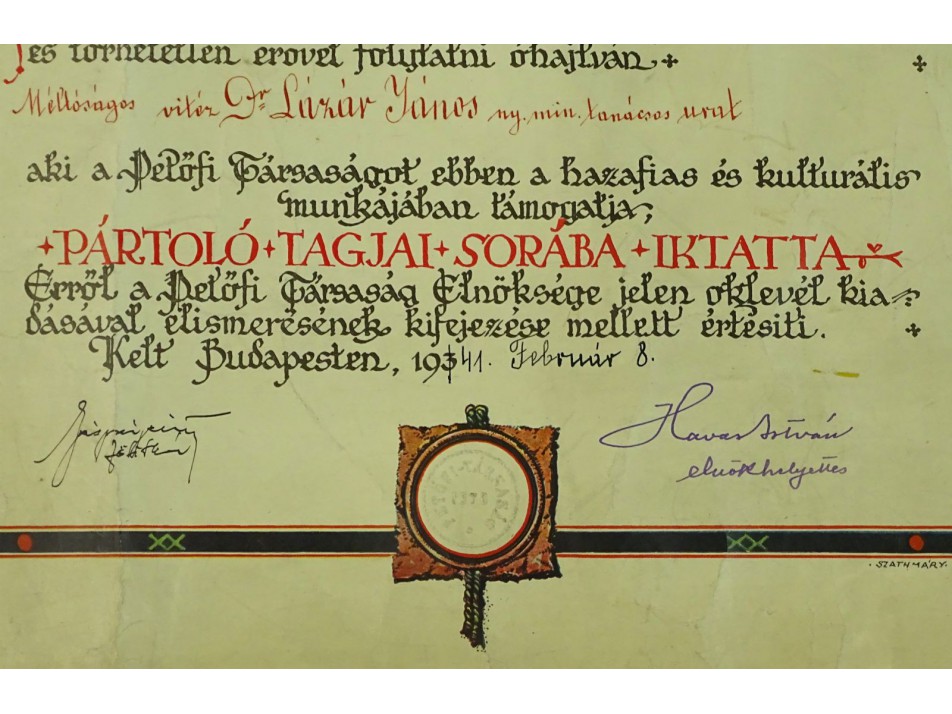 és törhetetlen erővel folytatni óhajtván
Méltóságos vitéz Dr. Lázár János ny. min. tanácsos urat
aki a Petőfi Társaságot ebben a hazafias és kulturális
munkájában támogatja,
PÁRTOLÓ TAGJAI SORÁBA IKTATTA
Erről a Petőfi Társaság Elnöksége jelen oklevél kia-
dásával elismerésének kifejezése mellett értesiti.
Kelt Budapesten, 1941. Február 8.
Havas István
elnökhelyettes
PETŐFI-TÁRSASÁG
1876
SZATHMÁRY